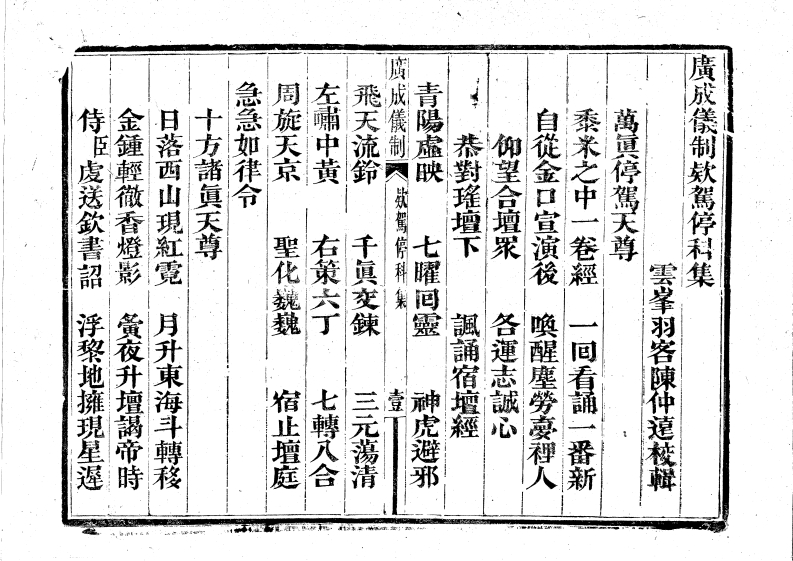 廣成儀制欵駕停科集
雲峯羽客陳仲遠校輯
萬眞停駕天尊
黍米之中一卷經 一回看誦一番新
自從金口宣演後 喚醒塵勞夢裡人
仰望合壇眾 各運志誠心
恭對瑤壇下 諷誦宿壇經
青陽虛映 七曜回靈 神虎避邪
廣成儀制 欵駕停科集 壹
飛天流鈴 千眞交鍊 三元蕩清
左嘯中黃 右策六丁 七轉八合
周旋天京 聖化巍巍 宿止壇庭
急急如律令
十方諸眞天尊
日落西山現紅霓 月升東海斗轉移
金鍾輕徹香燈影 夤夜升壇謁帝時
侍臣虔送欽書詔 浮黎地擁現星遲